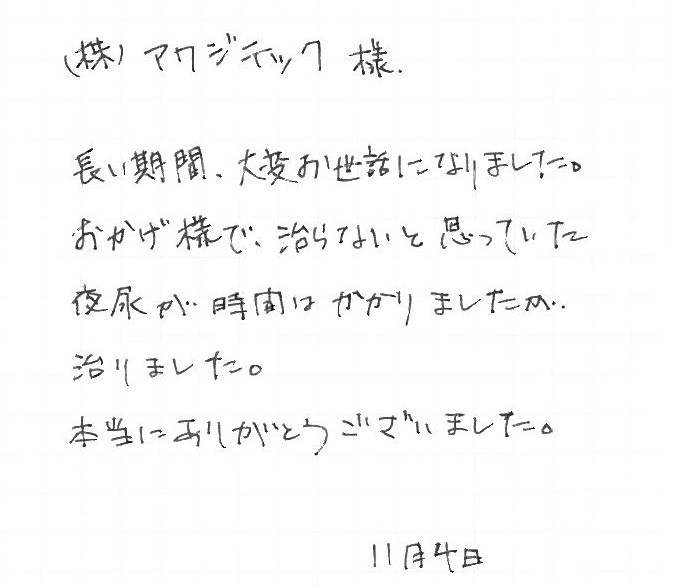 (株)アワジテック 様.
長い期間、大変お世話になりました。
おかげ様で、治らないと思っていた
夜尿が時間はかかりましたが、
治りました。
本当にありがとうございました。
11月4日